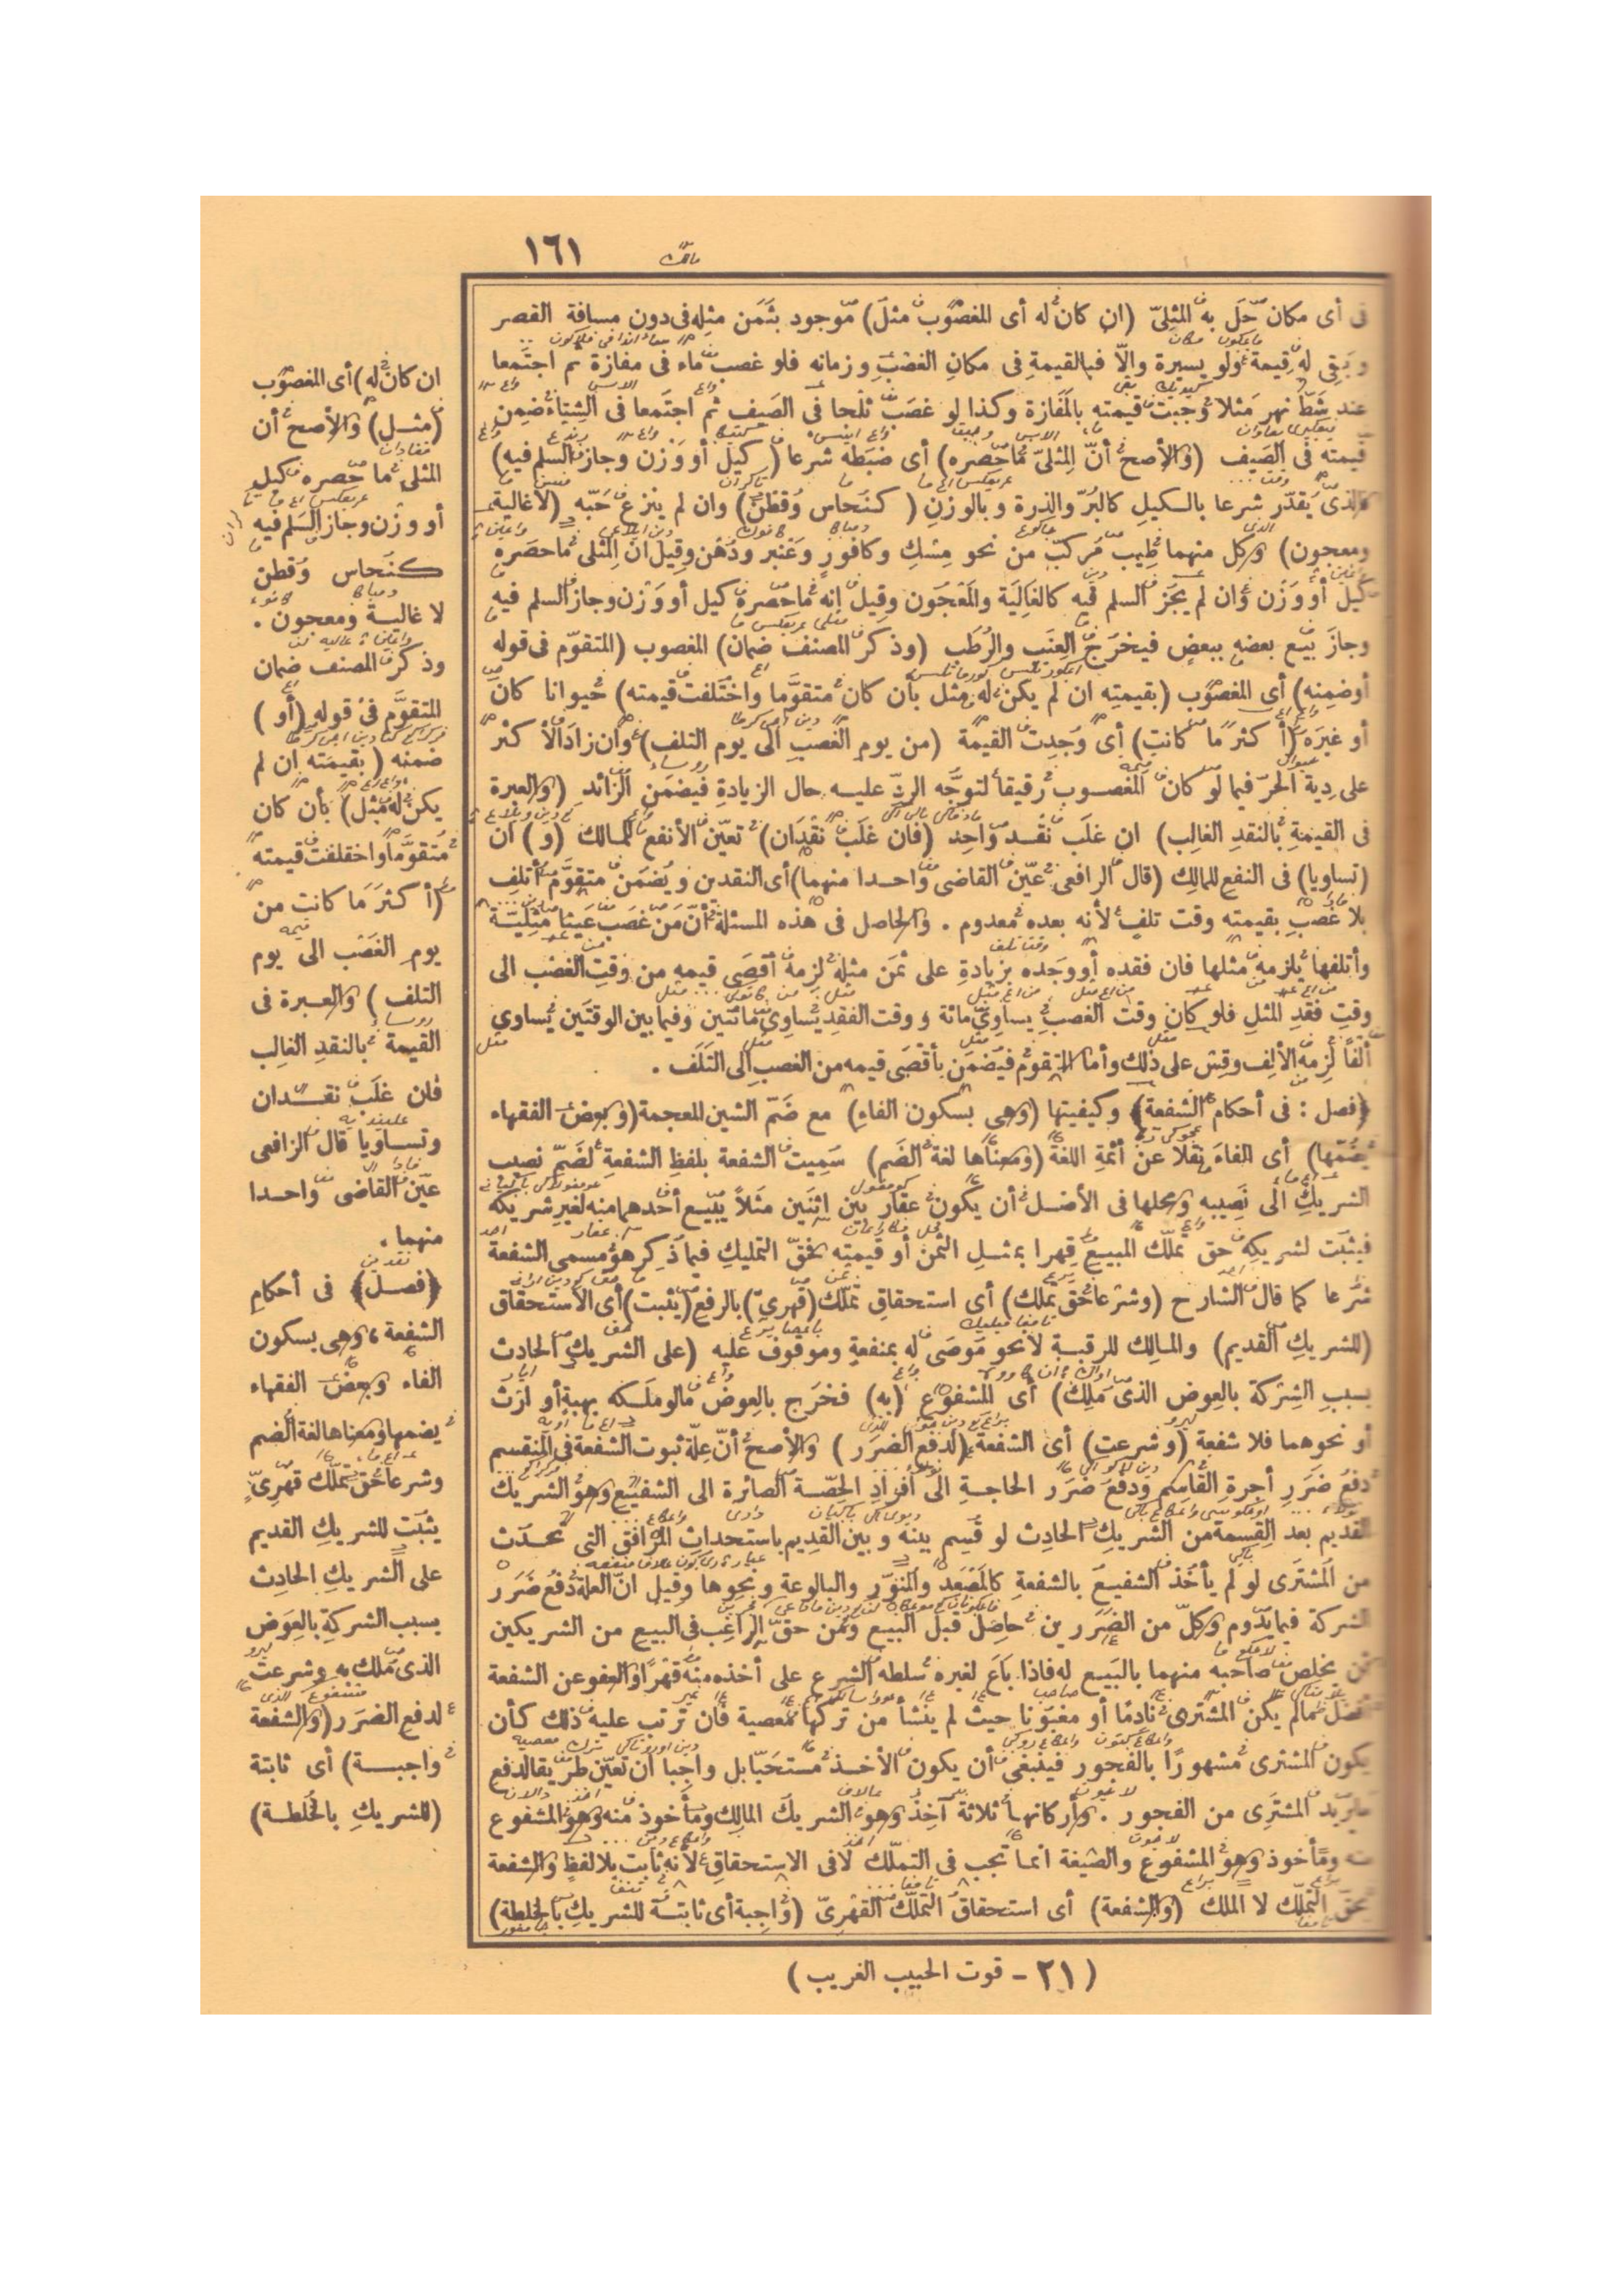 ١٦١
فى أى مكان حَلَّ به المثلىّ (ان كان له أى المغصوب مثل) موجود بثَمَن مثله فى دون مسافة القصر
وبَقِى له قيمة ولو يسيرة والّا فبالقيمةِ فى مكانِ الغصبِ وزمانه فلو غصب ماء فى مفازة ثم اجتَمعا
عند شطّ نهر مَثلا وجبت قيمته بالمَفازة وكذا لو غصَب ثلْجا فى الصَيف ثم اجتَمعا فى الشِتاء ضمِن
قيمته فى الصَيف (والأصح أنّ المِثلىّ ما حَصره) أى ضبَطه شرعا (كيل أو وَزْن وجاز السلم فيه)
فالذى يُقدّر شرعا بالكيلِ كالبُرّ والذرة وبالوزنِ (كنُحاس وقُطْن) وان لم ينزع حَبّه (لا غالية
ومعجون) وكل منهما طِيب مُركبّ من نحو مِسْكِ وكافورٍ وعَنْبر ودُهْن وقِيلَ انّ المِثلى ما حصَره
كيل أو وَزْن وان لم يَجُز السلم فيه كالغالِيَة والمَعْجُون وقِيلَ انه ما حَصره كيل أو وَزْن وجاز السلم فيه
وجازَ بَيع بعضه ببعضٍ فيخرَج العِنَب والرُطَب (وذكر المصنف ضمان) المغصوب (المتقوّم فى قوله
أو ضمنه) أى المغصوب (بقيمتِه ان لم يكن له مِثل بأن كان متقوَّما واختَلفت قيمته) حيوانا كان
أو غيرَه (أكثرَ ما كانت) أى وُجِدت القيمة (من يوم الغصبِ الى يوم التلف) وان زاد الأكثر
على دِية الحرّ فيما لو كان المغصوب رقيقا لتوجّه الردّ عليه حال الزيادةِ فيضمَن الزائدَ (والعبرة
فى القيمةِ بالنقدِ الغالِب) ان غلَب نقْد واحِد (فان غلَبَ نقْدَان) تعيّن الأنفع للمالك (و) ان
(تساويا) فى النفع للمالِك (قال الرافعى عيّن القاضى واحدا منهما) أى النقدين ويُضمَن متقوَّم أُتلِف
بلا غصْبٍ بقيمته وقت تلفٍ لأنه بعده معدوم . والحاصل فى هذه المسئلة أنّ مَن غصَب عَينا مِثليّة
وأتلفها يلزمه مثلها فان فقده أو وجَده بزيادةٍ على ثمَن مثله لزمه أقصَى قيمهِ من وقتِ الغصْب الى
وقتِ فقد المثل فلو كان وقت الغصبِ يساوى مائة ووقت الفقدِ يُساوِى مائتين وفيما بين الوقتَين يُساوي
ألفًا لَزِمه الألف وقِسْ على ذلك وأما المتقوّم فيُضمَن بأقصَى قيمه من الغصبِ الى التلَف .
﴿فصل : فى أحكام الشفعة﴾ وكيفيتها (وهى بسكون الفاءِ) مع ضَمّ الشين المعجمة (وبعض الفقهاء
يضُمّها) أى الفاءَ نقلا عن أئمّة اللغة (ومعناها لغة الضَم) سُمِيت الشفعة بلفظِ الشفعةِ لضَمّ نصيب
الشريكِ الى نَصِيبه ومحلها فى الأصل أن يكون عقار بين اثنَين مثلاً يَبيع أحدهما منه لغيرِ شريكه
فيثبُت لشريكِه حق تملّك المبيعِ قهرا بمثلِ الثمن أو قيمتِه فحقّ التمليكِ فيما ذُكر هو مسمى الشفعة
شرعا كما قال الشارح (وشرعا حق تملك) أى استحقاقِ تملّك (قهرىّ) بالرفع (يثبت) أى الاستحقاق
(للشريكِ القديم) والمالِك للرقبةِ لا نحو مُوصَى له بمنفعةٍ وموقوف عليه (على الشريكِ الحادث
بسببِ الشِرْكة بالعِوض الذى مَلِك) أى المشفوع (به) فخرَج بالعِوض ما لو ملَكه بهبةٍ أو ارثٍ
أو نحوهما فلا شفعة (وشرعت) أى الشفعة (لدفع الضرَر) والأصح أنّ علّة ثبوت الشفعة فى المنقسم
دفعُ ضَرَرِ أجرةِ القاسِم ودفعَ ضَرَر الحاجةِ الى أفرادِ الحِصّة الصائرة الى الشفيع وهو الشريك
القديم بعد القِسمة من الشريكِ الحادِث لو قُسِم بينه وبين القدِيم باستحداثِ المرافق التى تحدَث
من المشتَرى لو لم يأخذ الشفيعُ بالشفعةِ كالمَصْعَد والمُنوَّر والبالوعة ونحوها وقيل انّ العلة دفعُ ضَرَر
الشركة فيما يَدُوم وكلّ من الضرَرين حاصِل قبل البيع ومن حقّ الراغب فى البيع من الشريكين
أن يخلص صاحبه منهما بالبَيع له فاذا باع لغيره سلطه الشرع على أخذه منه قَهْرًا والعفو عن الشفعة
أفضل ما لم يكُن المشترى نادِمًا أو مغبونا حيث لم ينْشأ من تركها معصية فان ترتب عليه ذلك كأن
يكون المشترى مشهورًا بالفجور فينبغى أن يكون الأخذ مستحَبّا بل واجبا ان تعيّن طريقا لدفع
ما يُريد المشتَرِى من الفجور . وأركانها ثلاثة آخِذ وهو الشريك المالِك ومأخوذ منه وهو المشفوع
منه ومأخوذ وهو المشفوع والصّيغة انما تجب فى التملّك لا فى الاستحقاق لأنه ثابت بلا لفظٍ والشفعة
بحقّ التملّك لا الملك (والشفعة) أى استحقاقُ التملّك القَهْرىّ (واجبة أى ثابتة للشريكِ بالخلطة)
ان كان له) أى المغصوب
(مثل) والأصح أن
المثلى ما حَصره كيل
أو وزْن وجاز السَلم فيه
كنَحاس وقُطن
لا غالية ومعجون .
وذكر المصنف ضمان
المتقوَّم فى قوله (أو)
ضمنه (بقيمَته ان لم
يكن له مثل) بأن كان
مُتقوَّما واختلفت قيمته
(أكثرَ مَا كانت من
يوم الغَصْب الى يوم
التلف) والعبرة فى
القيمة بالنقدِ الغالِب
فان غلَب نقدان
وتساويا قال الرافعى
عيّن القاضى واحدا
منهما .
﴿فصل﴾ فى أحكام
الشفعة ، وهى بسكون
الفاء وبعض الفقهاء
يضمها ومعناها لغة الضم
وشرعا حق تملّك قهرىّ
يثبُت للشريكِ القديم
على الشريكِ الحادِث
بسبب الشركةِ بالعِوَض
الذى مَلك به وشرعت
لدفع الضرَر (والشفعة
واجبة) أى ثابتة
(للشريكِ بالخُلطة)
(٢١ - قوت الحبيب الغريب)